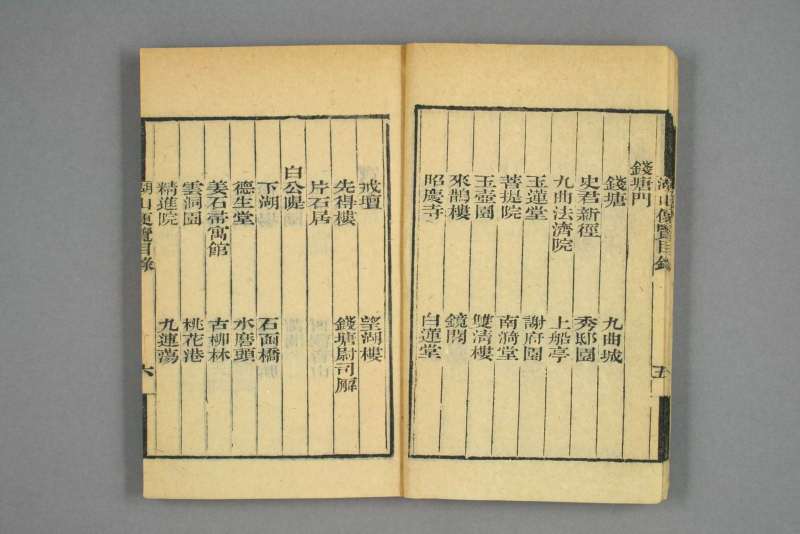 湖山便覽目錄 五
錢塘門
錢塘 九曲城
史君新徑 秀邸園
九曲法濟院 上船亭
玉蓮堂 謝府園
菩提院 南漪堂
玉壺園 雙清樓
來鵲樓 鏡閣
昭慶寺 白蓮堂
戒壇 望湖樓
先得樓 錢塘尉司廨
片石居
白公隄
下湖 石函橋
德生堂 水磨頭
姜石帚寓館 古柳林
雲洞園 桃花港
精進院 九蓮蕩
湖山便覽目錄 六